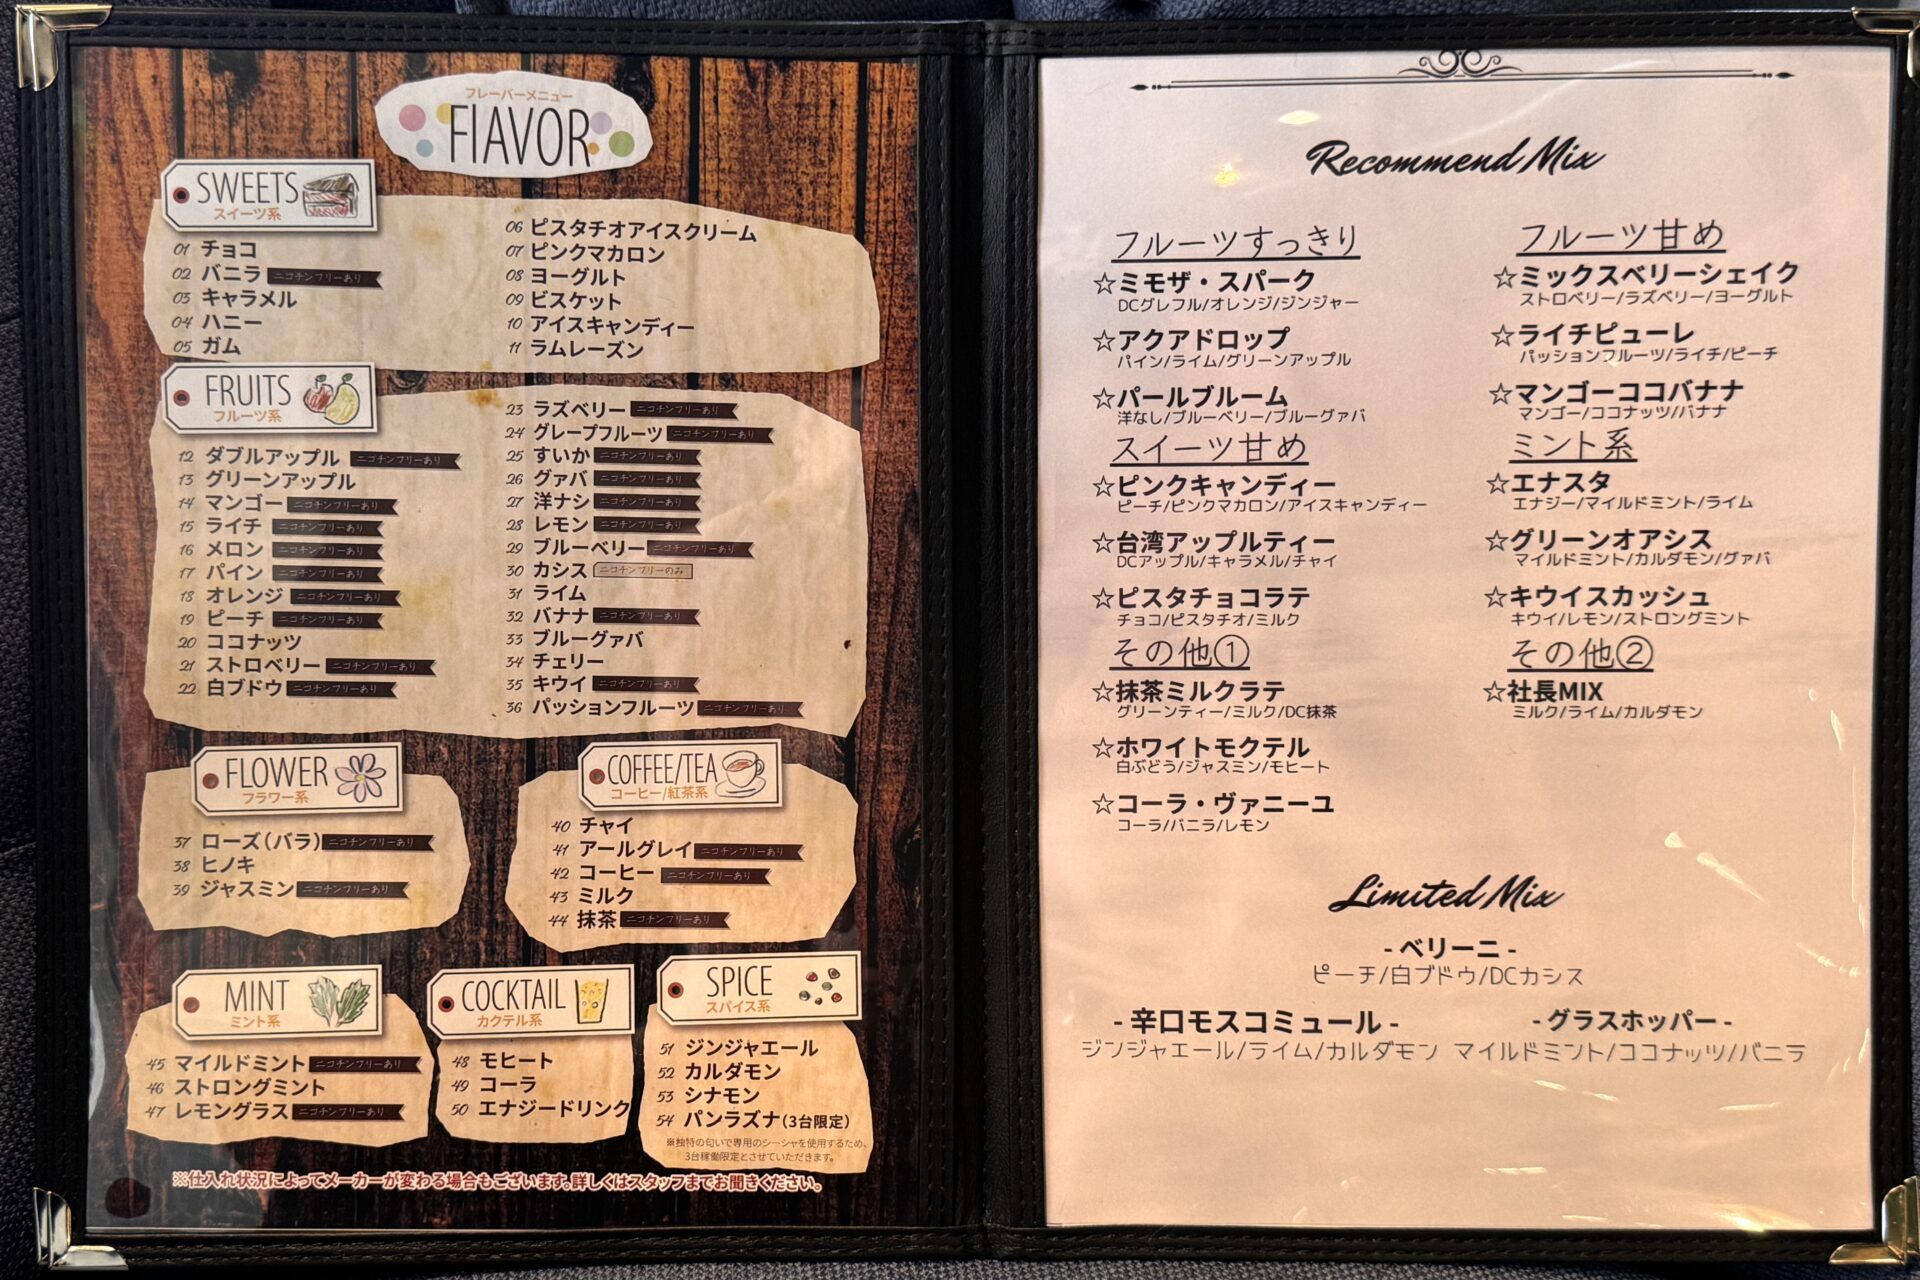 フレーバーメニュー
FlAVOR
SWEETS
スイーツ系
01 チョコ
02 バニラ ニコチンフリーあり
03 キャラメル
04 ハニー
05 ガム
06 ピスタチオアイスクリーム
07 ピンクマカロン
08 ヨーグルト
09 ビスケット
10 アイスキャンディー
11 ラムレーズン
FRUITS
フルーツ系
12 ダブルアップル ニコチンフリーあり
13 グリーンアップル
14 マンゴー ニコチンフリーあり
15 ライチ ニコチンフリーあり
16 メロン ニコチンフリーあり
17 パイン ニコチンフリーあり
18 オレンジ ニコチンフリーあり
19 ピーチ ニコチンフリーあり
20 ココナッツ
21 ストロベリー ニコチンフリーあり
22 白ブドウ ニコチンフリーあり
23 ラズベリー ニコチンフリーあり
24 グレープフルーツ ニコチンフリーあり
25 すいか ニコチンフリーあり
26 グァバ ニコチンフリーあり
27 洋ナシ ニコチンフリーあり
28 レモン ニコチンフリーあり
29 ブルーベリー ニコチンフリーあり
30 カシス ニコチンフリーのみ
31 ライム
32 バナナ ニコチンフリーあり
33 ブルーグァバ
34 チェリー
35 キウイ ニコチンフリーあり
36 パッションフルーツ ニコチンフリーあり
FLOWER
フラワー系
37 ローズ(バラ) ニコチンフリーあり
38 ヒノキ
39 ジャスミン ニコチンフリーあり
COFFEE/TEA
コーヒー/紅茶系
40 チャイ
41 アールグレイ ニコチンフリーあり
42 コーヒー ニコチンフリーあり
43 ミルク
44 抹茶 ニコチンフリーあり
MINT
ミント系
45 マイルドミント ニコチンフリーあり
46 ストロングミント
47 レモングラス ニコチンフリーあり
COCKTAIL
カクテル系
48 モヒート
49 コーラ
50 エナジードリンク
SPICE
スパイス系
51 ジンジャエール
52 カルダモン
53 シナモン
54 パンラズナ(3台限定)
※独特の匂いで専用のシーシャを使用するため、
3台稼働限定とさせていただきます。
※仕入れ状況によってメーカーが変わる場合もございます。詳しくはスタッフまでお聞きください。
Recommend Mix
フルーツすっきり
☆ミモザ・スパーク
DCグレフル/オレンジ/ジンジャー
☆アクアドロップ
パイン/ライム/グリーンアップル
☆パールブルーム
洋なし/ブルーベリー/ブルーグァバ
スイーツ甘め
☆ピンクキャンディー
ピーチ/ピンクマカロン/アイスキャンディー
☆台湾アップルティー
DCアップル/キャラメル/チャイ
☆ピスタチョコラテ
チョコ/ピスタチオ/ミルク
その他①
☆抹茶ミルクラテ
グリーンティー/ミルク/DC抹茶
☆ホワイトモクテル
白ぶどう/ジャスミン/モヒート
☆コーラ・ヴァニーユ
コーラ/バニラ/レモン
フルーツ甘め
☆ミックスベリーシェイク
ストロベリー/ラズベリー/ヨーグルト
☆ライチピューレ
パッションフルーツ/ライチ/ピーチ
☆マンゴーココバナナ
マンゴー/ココナッツ/バナナ
ミント系
☆エナスタ
エナジー/マイルドミント/ライム
☆グリーンオアシス
マイルドミント/カルダモン/グァバ
☆キウイスカッシュ
キウイ/レモン/ストロングミント
その他②
☆社長MIX
ミルク/ライム/カルダモン
Limited Mix
- ベリーニ -
ピーチ/白ブドウ/DCカシス
- 辛口モスコミュール -
ジンジャエール/ライム/カルダモン
- グラスホッパー -
マイルドミント/ココナッツ/バニラ